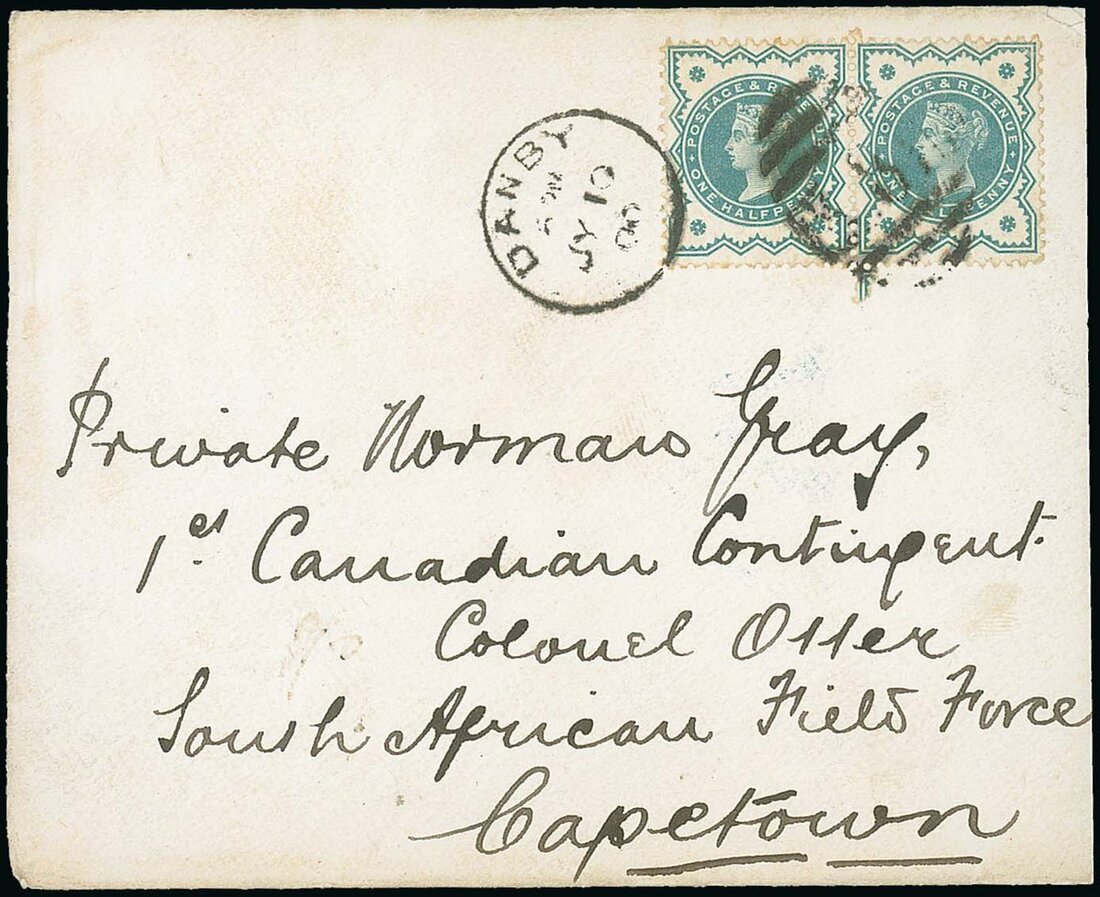 POSTAGE & REVENUE
ONE HALFPENNY
POSTAGE & REVENUE
ONE HALFPENNY
DANBY
JY 10
00
Private Norman Gray,
1st Canadian Contingent.
Colonel Otter
South African Field Force
Capetown